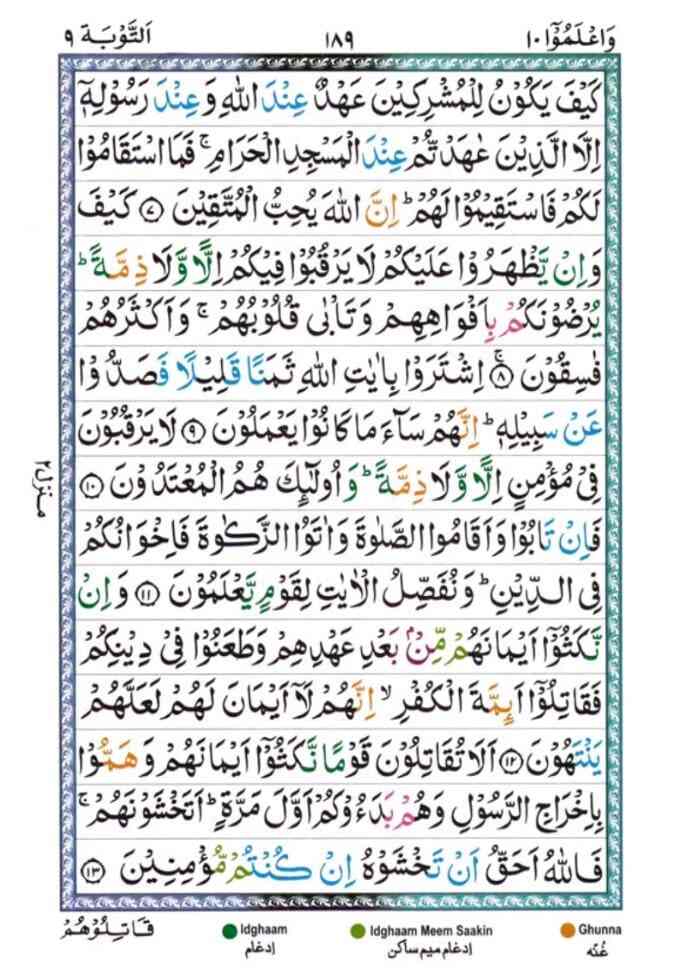 وَاعْلَمُوْٓا ١٠ ١٨٩ اَلتَّوْبَة ٩
كَيْفَ يَكُوْنُ لِلْمُشْرِكِيْنَ عَهْدٌ عِنْدَ اللّٰهِ وَعِنْدَ رَسُوْلِهٖٓ
اِلَّا الَّذِيْنَ عٰهَدْتُّمْ عِنْدَ الْمَسْجِدِ الْحَرَامِ ۚ فَمَا اسْتَقَامُوْا
لَكُمْ فَاسْتَقِيْمُوْا لَهُمْ ؕ اِنَّ اللّٰهَ يُحِبُّ الْمُتَّقِيْنَ ﴿۷﴾ كَيْفَ
وَاِنْ يَّظْهَرُوْا عَلَيْكُمْ لَا يَرْقُبُوْا فِيْكُمْ اِلًّا وَّلَا ذِمَّةً ؕ
يُرْضُوْنَكُمْ بِاَفْوَاهِهِمْ وَتَاْبٰى قُلُوْبُهُمْ ۚ وَاَكْثَرُهُمْ
فٰسِقُوْنَ ﴿۸﴾ ۚ اِشْتَرَوْا بِاٰيٰتِ اللّٰهِ ثَمَنًا قَلِيْلًا فَصَدُّوْا
عَنْ سَبِيْلِهٖ ؕ اِنَّهُمْ سَآءَ مَا كَانُوْا يَعْمَلُوْنَ ﴿۹﴾ لَا يَرْقُبُوْنَ
فِيْ مُؤْمِنٍ اِلًّا وَّلَا ذِمَّةً ؕ وَاُولٰٓئِكَ هُمُ الْمُعْتَدُوْنَ ﴿۱۰﴾
فَاِنْ تَابُوْا وَاَقَامُوا الصَّلٰوةَ وَاٰتَوُا الزَّكٰوةَ فَاِخْوَانُكُمْ
فِي الدِّيْنِ ؕ وَنُفَصِّلُ الْاٰيٰتِ لِقَوْمٍ يَّعْلَمُوْنَ ﴿۱۱﴾ وَاِنْ
نَّكَثُوْٓا اَيْمَانَهُمْ مِّنْۢ بَعْدِ عَهْدِهِمْ وَطَعَنُوْا فِيْ دِيْنِكُمْ
فَقَاتِلُوْٓا اَئِمَّةَ الْكُفْرِ ۙ اِنَّهُمْ لَآ اَيْمَانَ لَهُمْ لَعَلَّهُمْ
يَنْتَهُوْنَ ﴿۱۲﴾ اَلَا تُقَاتِلُوْنَ قَوْمًا نَّكَثُوْٓا اَيْمَانَهُمْ وَهَمُّوْا
بِاِخْرَاجِ الرَّسُوْلِ وَهُمْ بَدَءُوْكُمْ اَوَّلَ مَرَّةٍ ؕ اَتَخْشَوْنَهُمْ ۚ
فَاللّٰهُ اَحَقُّ اَنْ تَخْشَوْهُ اِنْ كُنْتُمْ مُّؤْمِنِيْنَ ﴿۱۳﴾
منزل ٢
قَاتِلُوْهُمْ
Idghaam
ادغام
Idghaam Meem Saakin
ادغام میم ساکن
Ghunna
غنّہ